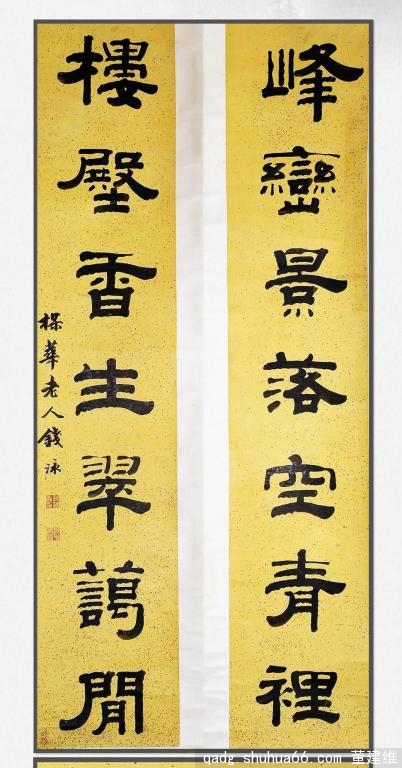 峰巒景落空青裡
樓壂香生翠藹閒
楳華老人錢泳
qadg.shuhua66.com 董建维